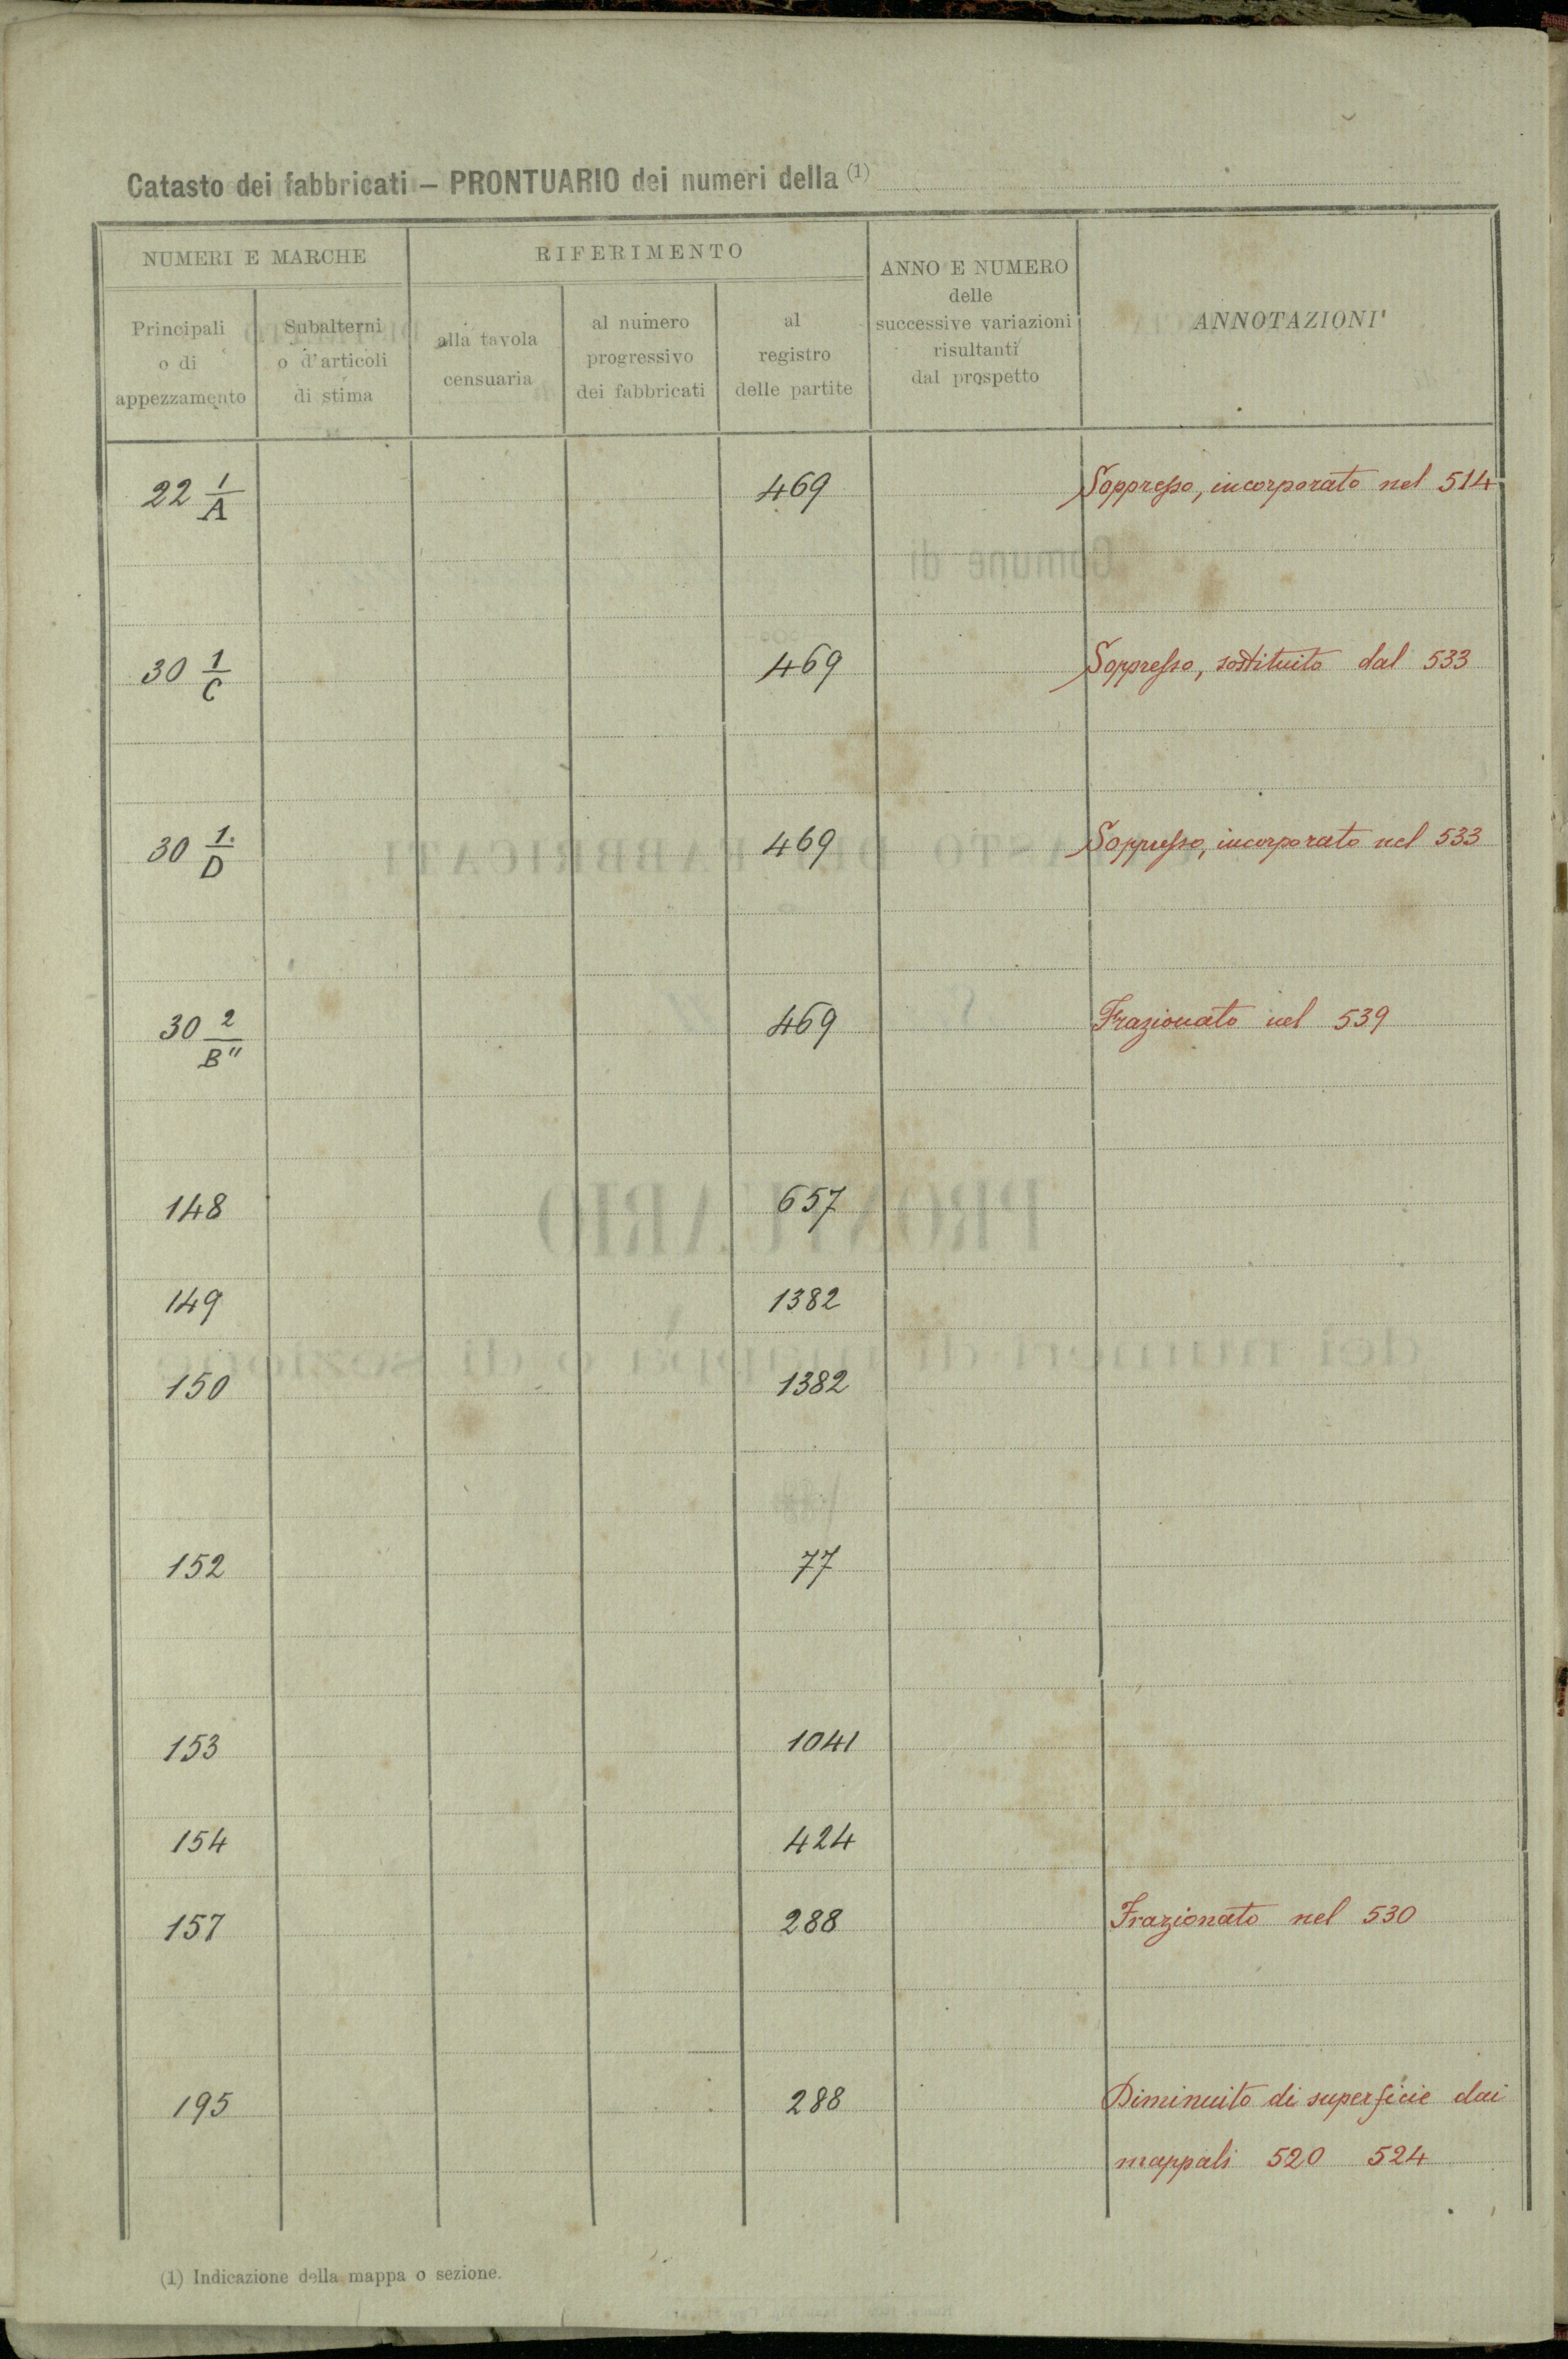 Catasto dei fabbricati – PRONTUARIO dei numeri della (1)
NUMERI E MARCHE
RIFERIMENTO
ANNO E NUMERO
delle
successive variazioni
risultanti
dal prospetto
ANNOTAZIONI
Principali
o di
appezzamento
Subalterni
o d'articoli
di stima
alla tavola
censuaria
al numero
progressivo
dei fabbricati
al
registro
delle partite
22 1/A 469 Soppresso, incorporato nel 514
30 1/C 469 Soppresso, sostituito dal 533
30 1/D 469 Soppresso, incorporato nel 533
30 2/B" 469 Frazionato nel 539
148 657
149 1382
150 1382
152 77
153 1041
154 424
157 288 Frazionato nel 530
195 288 Diminuito di superficie dai
mappali 520 524
(1) Indicazione della mappa o sezione.